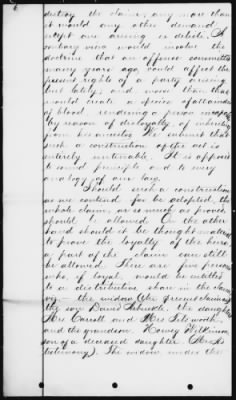 6
destroy the claim, any more than
it would any other demand,
except one arising ex delicto. A
contrary view would involve the
doctrine that an offence committed
many years ago, could affect the
present rights of a party arising
but lately; and more than that
would create a species of attainder
of blood, rendering a person incapable
by reason of disloyalty, of inheriting
from his ancestor. We submit that
such a construction of the act is
entirely untenable. It is opposed
to sound principle and to every
analogy of our law.
Should such a construction
as we contend for be adopted, the
whole claim, or so much as proved
should be allowed. On the other
hand should it be thought necessary
to prove the loyalty of the heirs,
a part of the claim can still
be allowed. There are five persons
who, if loyal, would be entitled
to a distributive share in the claim,
viz. the widow (the present claimant)
the son David Arbuckle, the daughters
Mrs Carroll and Mrs
and the grandson, Henry Wilkinson
son of a deceased daughter (
testimony). The widow under the